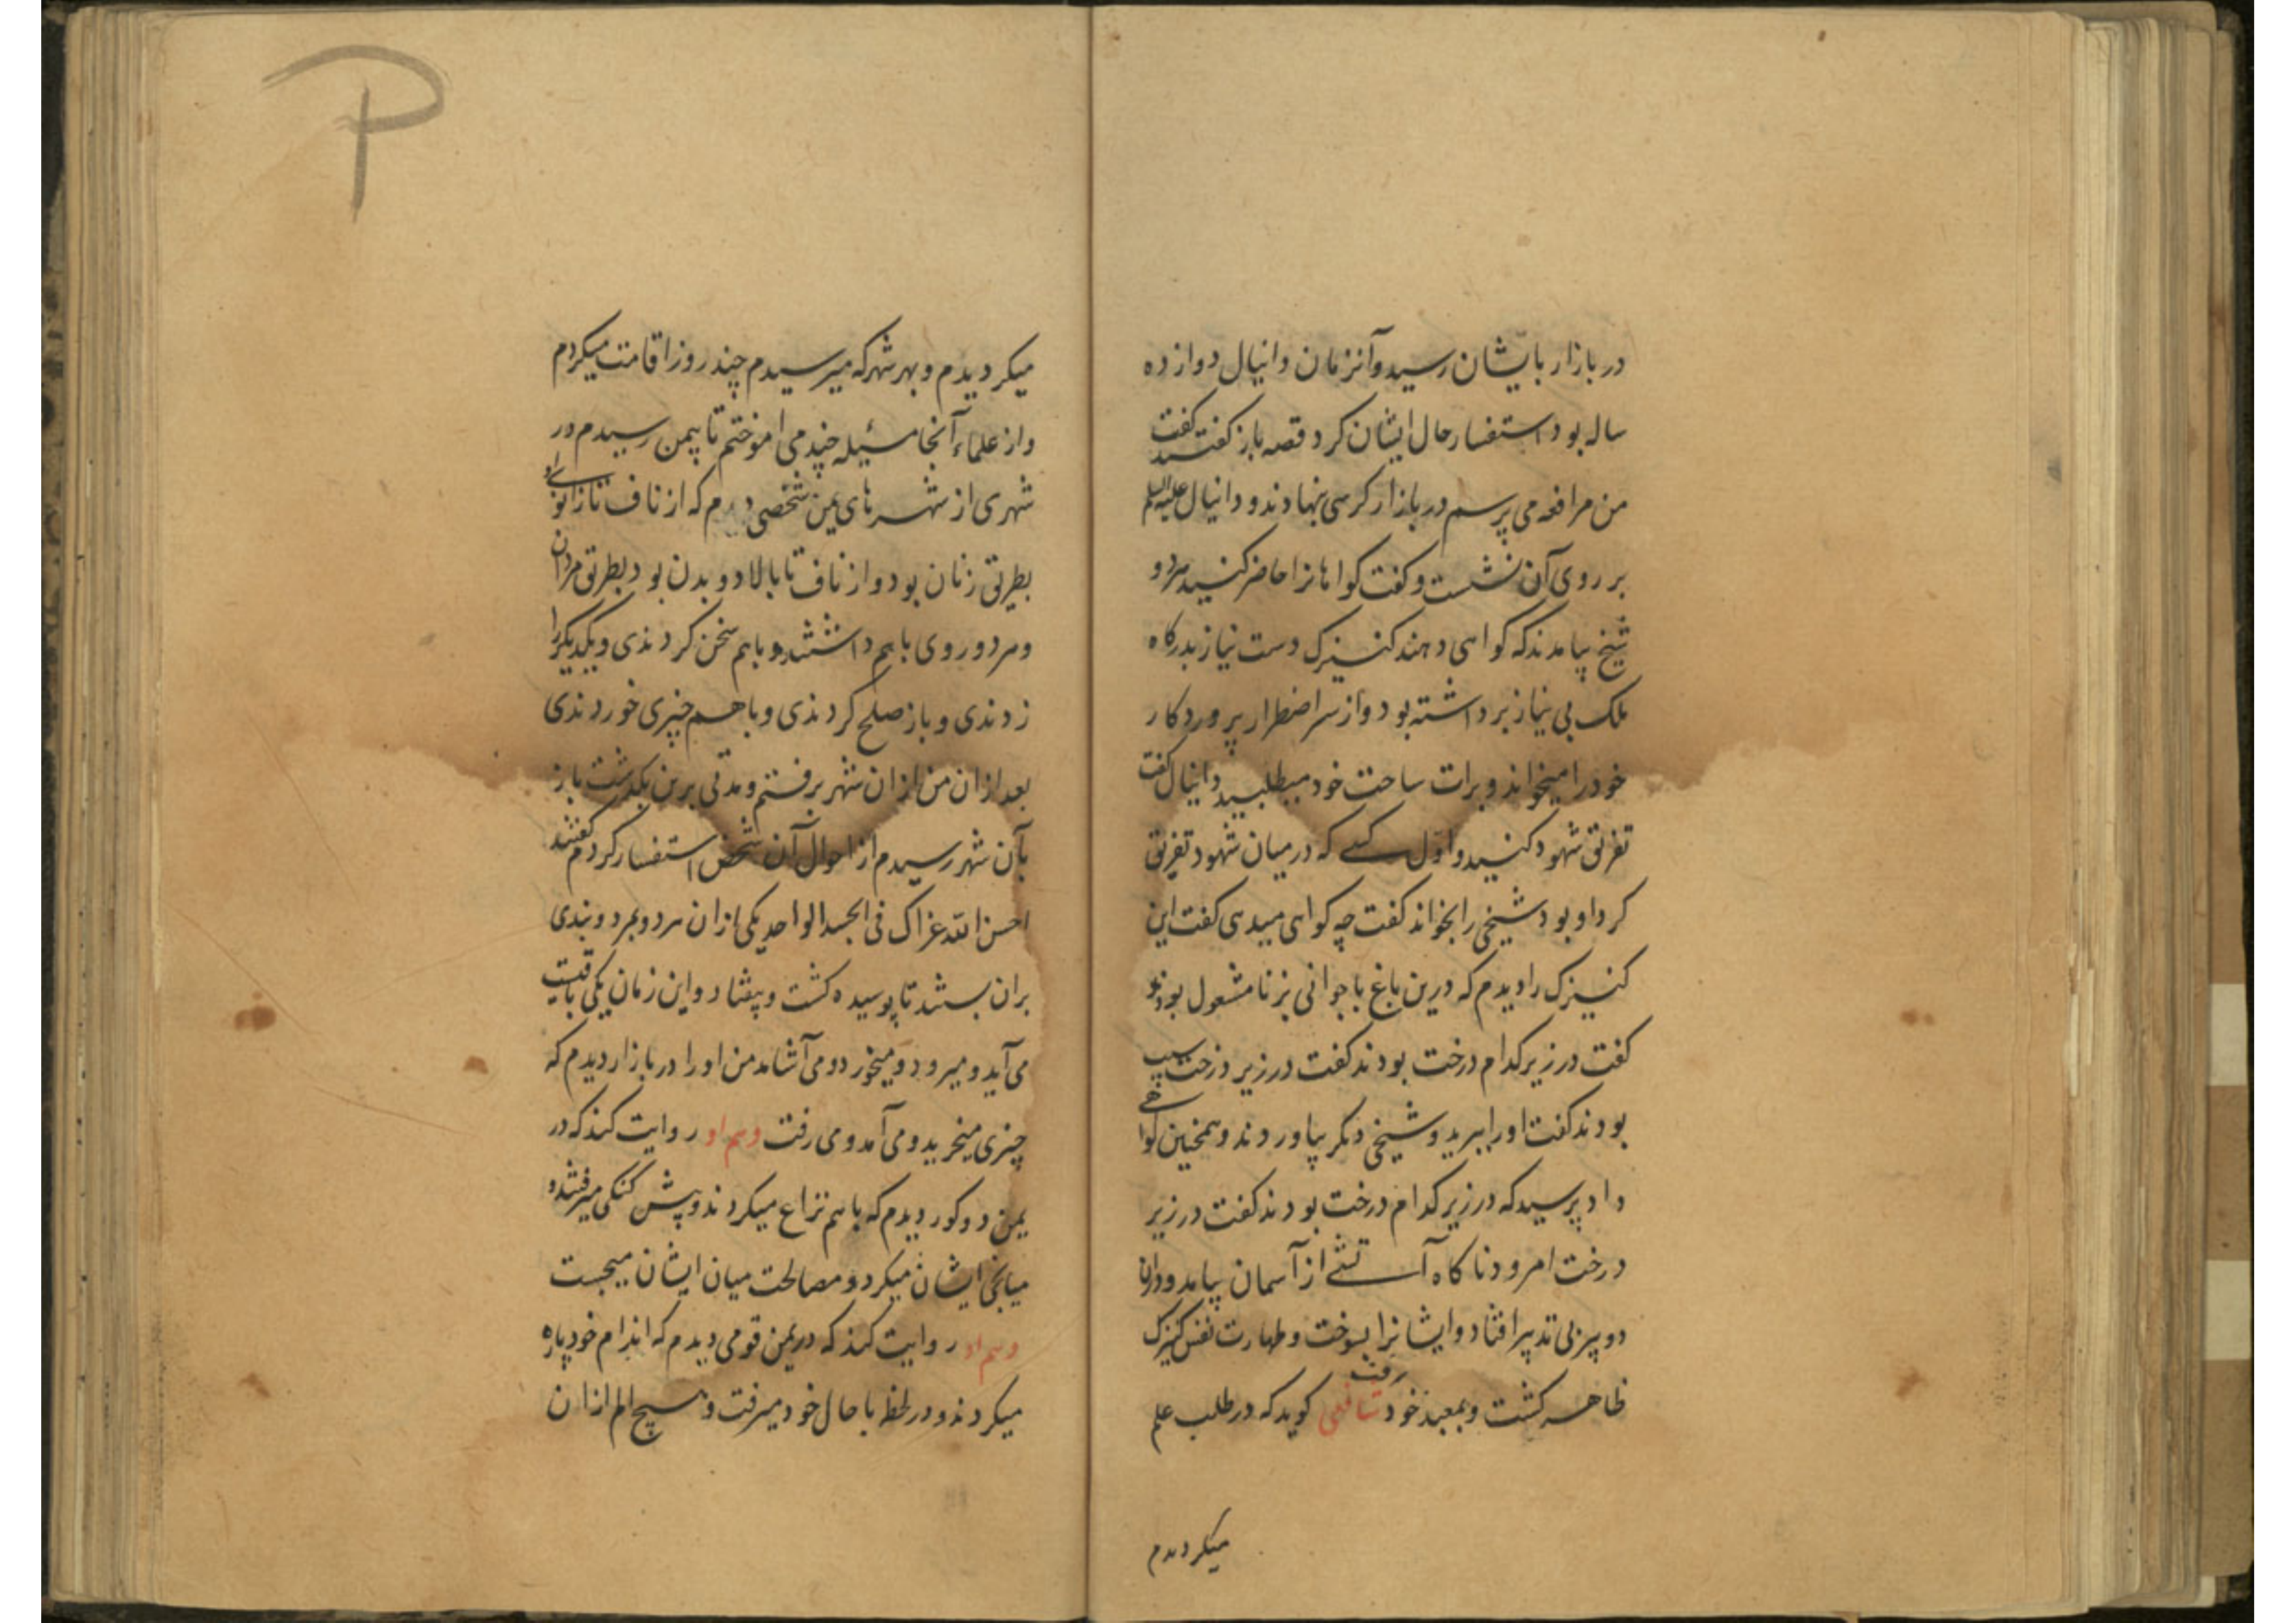 در بازار بایشان رسید و آنزمان دانیال دوازده
ساله بود استفسار حال ایشان کرد قصه باز گفتند گفت
من مرافعه می پرسم در بازار کرسی بنهادند و دانیال علیه السلم
بر روی آن نشست و گفت گواهانرا حاضر کنید هر دو
شیخ بیامدند که گواهی دهند کنیزک دست نیاز بدرگاه
ملک بی نیاز برداشته بود و از سر اضطرار پروردگار
خود را میخواند و برات ساحت خود میطلبید دانیال گفت
تفریق شهود کنید و اول کسی که در میان شهود تفریق
کرد او بود شیخی را بخواند گفت چه گواهی میدهی گفت این
کنیزک را دیدم که درین باغ با جوانی بزنا مشغول بودند
گفت در زیر کدام درخت بودند گفت در زیر درخت سیب
بودند گفت او را ببرید و شیخی دیگر بیاوردند و همچنین گواهی
داد پرسید که در زیر کدام درخت بودند گفت در زیر
درخت امرود ناگاه آتشی از آسمان بیامد و در آن
دو پیر بی تدبیر افتاد و ایشانرا بسوخت و طهارت نفس کنیزک
ظاهر گشت و بمعبد خود رفت شافعی گوید که در طلب علم
میگردیدم
میگردیدم و بهر شهر که میرسیدم چند روز اقامت میکردم
و از علماء آنجا مسئیله چند می اموختم تا بیمن رسیدم در
شهری از شهرهای یمن شخصی دیدم که از ناف تا زانو
بطریق زنان بود و از ناف تا بالا دو بدن بود بطریق مردان
و هر دو روی با هم داشتند و با هم سخن کردندی و یکدیگر را
زدندی و باز صلح کردندی و با هم چیزی خوردندی
بعد از ان من از ان شهر برفتم و مدتی برین بگذشت باز
بآن شهر رسیدم از احوال آن شخص استفسار کردم گفتند
احسن الله عزاک فی الجسد الواحد یکی از ان هر دو بمرد و بندی
بران بستند تا پوسیده گشت و بیفتاد و این زمان یکی باقیست
می آید و میرود و میخورد و می آشامد من او را در بازار دیدم که
چیزی میخرید و می آمد و می رفت و هم او روایت کند که در
یمن دو کور دیدم که با هم نزاع میکردند و پیش گنگی میرفتند و
میانجی ایشان میکرد و مصالحت میان ایشان میجست
و هم او روایت کند که در یمن قومی دیدم که اندام خود پاره
میکردند و در لحظه با حال خود میرفت و هیچ الم از ان